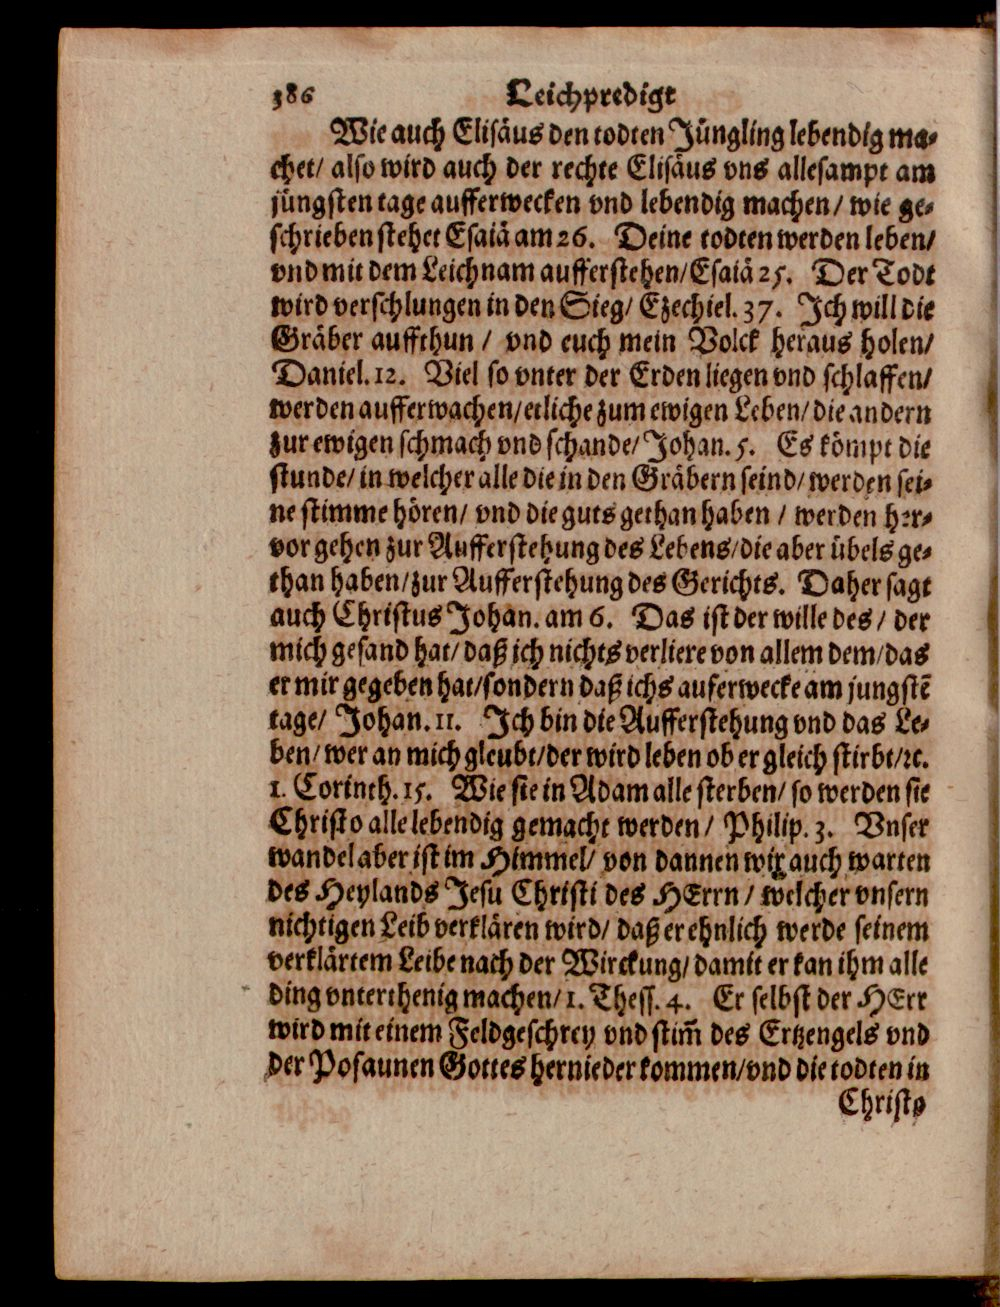 386 Leichpredigt
Wie auch Elisäus den todten Jüngling lebendig ma-
chet/ also wird auch der rechte Elisäus vns allesampt am
jüngsten tage aufferwecken vnd lebendig machen/ wie ge-
schrieben stehet Esaiä am 26. Deine todten werden leben/
vnd mit dem Leichnam aufferstehen/ Esaiä 25. Der Todt
wird verschlungen in den Sieg/ Ezechiel. 37. Ich will die
Gräber auffthun / vnd euch mein Volck heraus holen/
Daniel. 12. Viel so vnter der Erden liegen vnd schlaffen/
werden aufferwachen/ etliche zum ewigen Leben/ die andern
zur ewigen schmach vnd schande/ Johan. 5. Es kömpt die
stunde/ in welcher alle die in den Gräbern seind/ werden sei-
ne stimme hören/ vnd die guts gethan haben / werden her-
vor gehen zur Aufferstehung des Lebens/ die aber übels ge-
than haben/ zur Aufferstehung des Gerichts. Daher sagt
auch Christus Johan. am 6. Das ist der wille des / der
mich gesand hat/ daß ich nichts verliere von allem dem/ das
er mir gegeben hat/ sondern daß ichs auferwecke am jungstē
tage/ Johan. 11. Ich bin die Aufferstehung vnd das Le-
ben/ wer an mich gleubt/ der wird leben ob er gleich stirbt/ ꝛc.
1. Corinth. 15. Wie sie in Adam alle sterben/ so werden sie
Christo alle lebendig gemacht werden / Philip. 3. Vnser
wandel aber ist im Himmel/ von dannen wir auch warten
des Heylands Jesu Christi des HErrn / welcher vnsern
nichtigen Leib verklären wird/ daß er ehnlich werde seinem
verklärtem Leibe nach der Wirckung/ damit er kan ihm alle
ding vnterthenig machen/ 1. Thess. 4. Er selbst der HErr
wird mit einem Feldgeschrey vnd stim̃ des Ertzengels vnd
der Posaunen Gottes hernieder kommen/ vnd die todten in
Christo